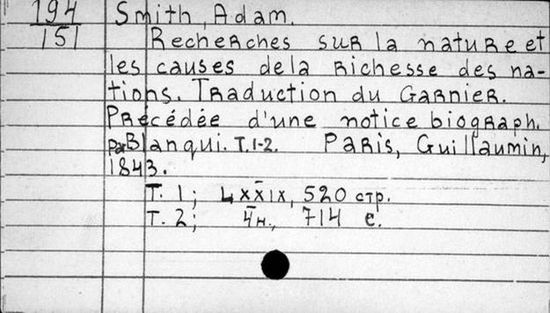 194 Smith, Adam.
151 Recherches sur la nature et
les causes dela Richesse des na-
tions. Traduction du Garnier.
Précédée d'une notice biograph.
par Blanqui. T. 1-2. Paris, Guillaumin,
1843.
T. 1; LXXIX, 520 стр.
T. 2; 4н., 714 с.